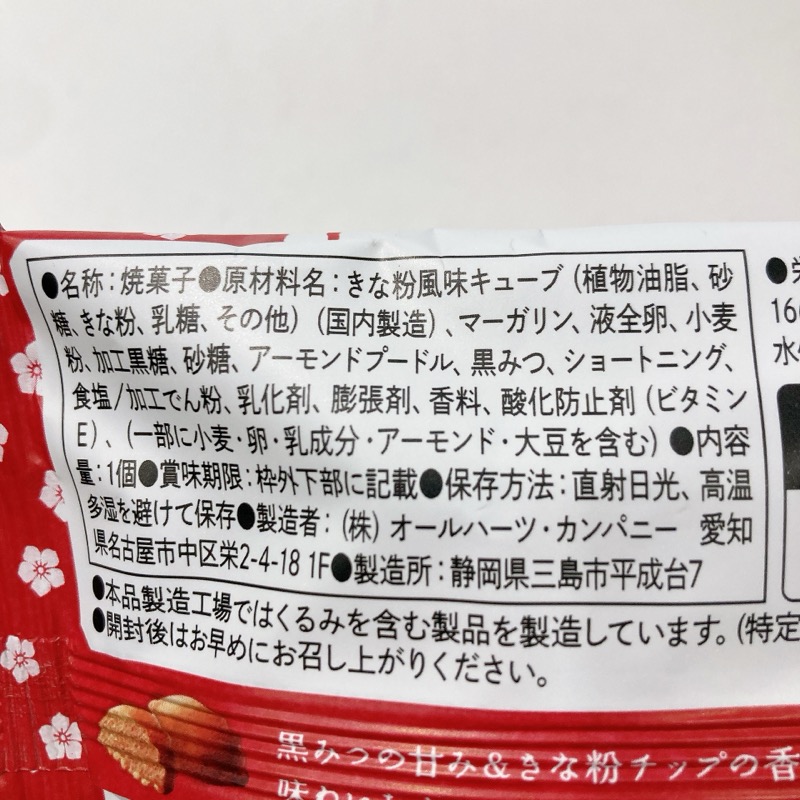 ●名称：焼菓子●原材料名：きな粉風味キューブ（植物油脂、砂
糖、きな粉、乳糖、その他）（国内製造）、マーガリン、液全卵、小麦
粉、加工黒糖、砂糖、アーモンドプードル、黒みつ、ショートニング、
食塩/加工でん粉、乳化剤、膨張剤、香料、酸化防止剤（ビタミン
E）、（一部に小麦・卵・乳成分・アーモンド・大豆を含む）●内容
量：1個●賞味期限：枠外下部に記載●保存方法：直射日光、高温
多湿を避けて保存●製造者：（株）オールハーツ・カンパニー 愛知
県名古屋市中区栄2-4-18 1F●製造所：静岡県三島市平成台7
●本品製造工場ではくるみを含む製品を製造しています。（特定
●開封後はお早めにお召し上がりください。
黒みつの甘み＆きな粉チップの香